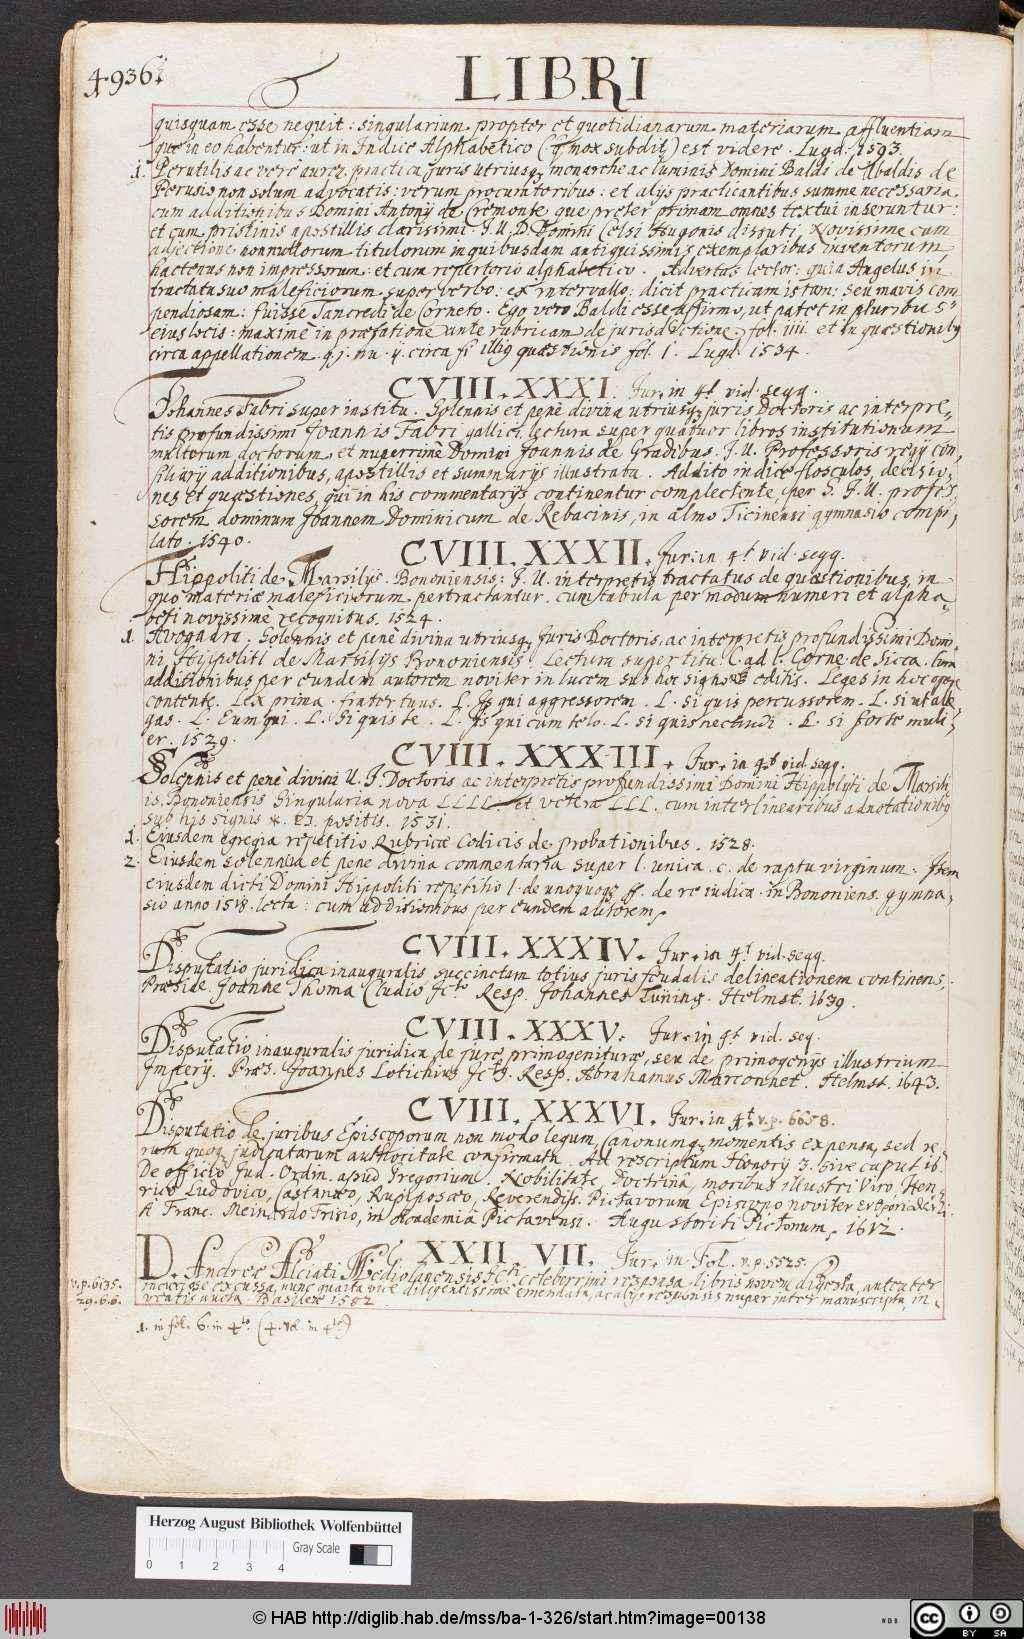 4.936
LIBRI
quisquam esse nequit: singularium propter et quotidianarum materiarum affluentiam
que in eo habentur: ut in Indice Alphabetico (q mox subdit) est videre. Lugd. 1593.
1. Perutilis ac vere aurea practica juris utriusq, monarche ac luminis Domini Baldi de Ubaldis de
Perusio non solum advocatis: verum procuratoribus: et alijs practicantibus summe necessaria.
cum additionibus Domini Antonij de Cremonte que preter primam omnes textui inseruntur:
et cum pristinis apostillis clarissimi J. U. D. Domini Celsi Hugonis dissuti. Novissime cum
adjectione nonnullorum titulorum in quibusdam antiquissimis exemplaribus inventorum
hactenus non impressorum: et cum repertorio alphabetico. Advertas lector: quia Angelus in
tractatu suo maleficiorum super verbo: ex intervallo: dicit practicam istam: seu mavis com
pendiosam: fuisse Tancredi de Corneto. Ego vero Baldi esse affirmo, ut patet in pluribus
ejus locis: maximè in præfatione ante rubricam de jurisdictione, fol. iiii et in quæstionib9
circa appellationem circa fi illi9 quæstionis fol. 1. Lugd. 1534.
CVIII. XXXI. Jur. in 4t vid. seqq.
Johannes Fabri super institu. Solennis et penè divina utriusq, juris Doctoris ac interpre,
tis profundissimi Joannis Fabri gallici lectura super quatuor libros institutionum
multorum doctorum et nuperrimè Domini Joannis de Gradibus. J. U. Professoris regij con,
siliarij additionibus, apostillis et summarijs illustrata. Addito indice flosculos, decisio,
nes et quæstiones, qui in his commentarijs continentur complectente, per S. J. U. profes,
sorem dominum Joannem Dominicum de Rebacinis, in almo Ticinensi gymnasio compi,
lato. 1540.
CVIII. XXXII. Jur. in 4t vid. seqq.
Hippoliti de Marsilijs. Bononiensis: J. U. interpretis tractatus de quæstionibus, in
quo materiæ maleficiorum pertractantur. cum tabula per modum numeri et alpha,
beti novissimè recognitus. 1524.
1. Avogadra. Solennis et penè divina utriusq, Juris Doctoris, ac interpretis profundissimi Domi,
ni Hippoliti de Marsilijs Bononiensis. Lectura super titu. C. ad l. Corne. de Sicca. cum
additionibus per eundem autorem noviter in lucem sub hoc signo editis. Leges in hoc opere
contente. Lex prima. frater tuus. L. Js qui aggressorem. L. Si quis percussorem. L. si ut alle,
gas. L. Eum qui. L. Si quis te. L. Js qui cum telo. L. si quis necandi. L. si forte muli,
er. 1529.
CVIII. XXXIII. Jur. in 4t vid seqq.
Solennis et penè divini U. J. Doctoris ac interpretis profundissimi Domini Hippolyti de Marsili,
is. Bononiensis Singularia nova LLLL. et vetera LLL. cum interlinearibus adnotationib9
sub his signis positis. 1531.
1. Eiusdem egregia repetitio Rubricæ Codicis de probationibus. 1528.
2. Eiusdem solennia et pene divina commentaria super l. unica. c. de raptu virginum. Item
eiusdem dicti Domini Hippoliti repetitio l. de unoquoqe ff. de re iudica. in Bononiens. gymna,
sio anno 1518. lecta: cum additionibus per eundem autorem.
CVIII. XXXIV. Jur. in 4t vid. seqq.
Disputatio juridica inauguralis succinctam totius juris feudalis delineationem continens,
Præside Joanne Thoma Cludio Jcto Resp. Johannes Lüning. Helmst. 1639.
CVIII. XXXV. Jur. in 4t vid. seq.
Disputatio inauguralis juridica de jure primogenituræ, seu de primogenijs illustrium
Imperij. Præs. Joannes Lotichius Jcto. Resp. Abrahamus Marconnet. Helmst. 1643.
CVIII. XXXVI. Jur. in 4t v. p. 6658.
Disputatio de juribus Episcoporum non modo legum, Canonumq, momentis expensa, sed re,
rum quoq, judicatarum authoritate confirmata. Ad rescriptum Honorij 3. sive caput 16.
De officio Jud. Ordin. apud Gregorium. Nobilitate, Doctrina, moribus illustri Viro, Hen,
rico Ludovico, Castanæo, Rupiposæo, Reverendiss. Pictavorum Episcopo noviter
A Franc. Meinardo Frisio, in Academiâ Pictavensi. Augustoriti Pictonum, 1612.
XXII VII. Jur. in Fol. v. p. 5525.
v. p. 6135.
29. 6. 6.
D. Andreæ Alciati Mediolanensis Jcti celeberrimi responsa libris novem digesta, antea ter
incudique excussa, nunc quarta vice diligentissime emendata, ac alijs responsis nuper inter manuscripta in,
ventis aucta. Basileæ 1582.
1. in fol. 6. in 4to. (4. vol. in 4to)
Herzog August Bibliothek Wolfenbüttel
Gray Scale
0 1 2 3 4
© HAB http://diglib.hab.de/mss/ba-1-326/start.htm?image=00138
WDB
cc BY SA